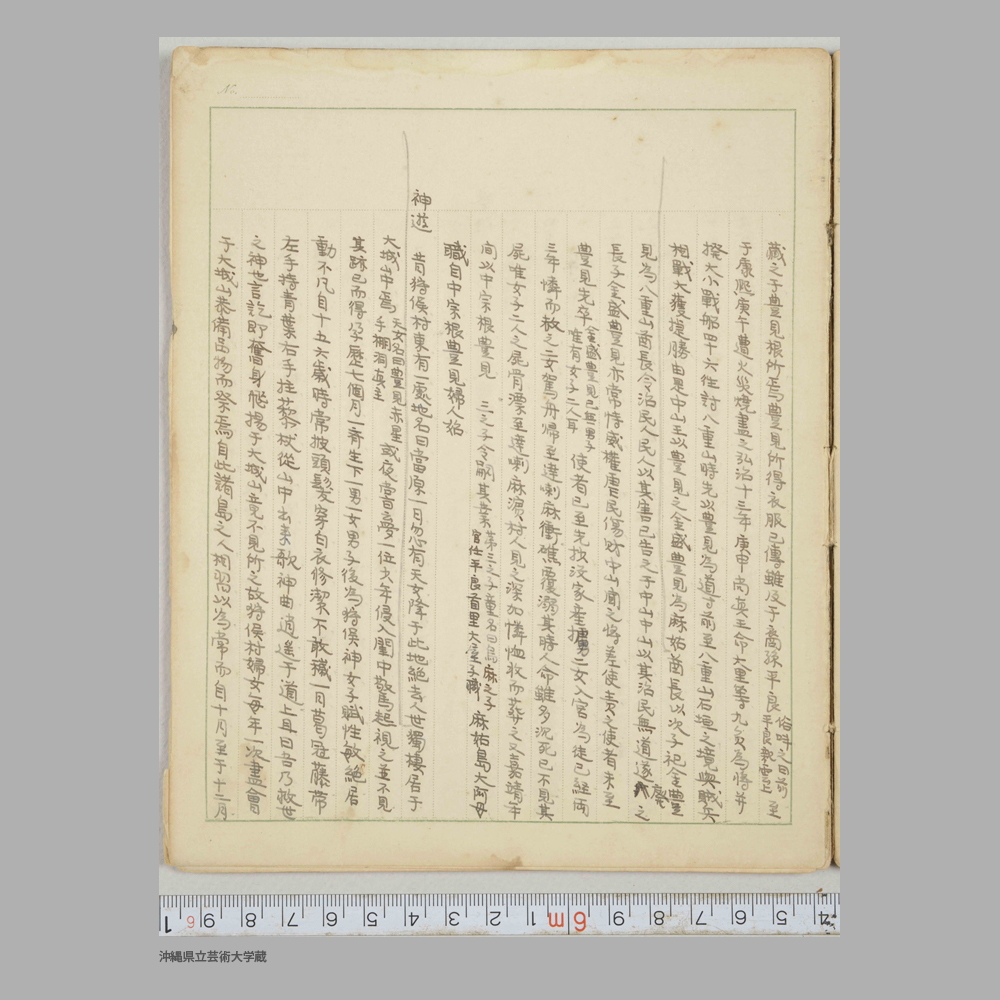 蔵之子豊見根所焉豊見所得衣服已傳雖及于裔孫平良俗叫之曰前平良親雲上至
于康熙庚午遭火災焼盡之弘治十三年庚申尚真王命大里等九員為將并
撥大小戰船四十六往討八重山時先以豊見為導者前至八重山石垣之境與賊兵
相戰大獲捷勝由是中山王以豊見之金盛豊見為麻姑酋長以次子祀金豊
見為八重山酋長令治民人民人以其害已告之于中山中山以其治民無道遂廢之
長子金盛豊見亦常恃威權虐民傷財中山聞之將差使責之使者未至
豊見先卒金盛豊見已無男子唯有女子二人耳使者已至先抄没家産擄二女入宮為徒已經両
三年憐而赦之二女駕舟歸至達喇麻衝礁覆溺其時人命雖多沉死已不見其
屍唯女子二人之屍骨漂至達喇麻濱村人見之深加憐恤收而葬之又嘉靖年
間以中宗根豊見 三之子令嗣其業第三之子童名曰馬麻之子官仕平良首里大屋子職 麻姑島大阿母
職自中宗根豊見婦人始
神遊 昔狩俣村東有一處地名曰當原一日忽有天女降于此地絕去人世獨棲居于
大城山中焉天女名曰豊見赤星手棚洞真主或夜嘗夢一位少年侵入閨中驚起視之並不見
其跡已而得孕歷七個月一齊生下一男一女男子後為狩俣神女子賦性敏絕居
動不凡自十五六歳時常披頭髮穿白衣修潔不敢穢一月葛冠藤帯
左手持青葉右手拄藜杖從山中出來歌神曲逍遙于道上且曰吾乃救世
之神也言訖即奮身飛揚于大城山竟不見所之故狩俣村婦女毎年一次盡會
于大城山恭備品物而祭焉自此諸島之人相習以為常而自十月至于十二月
沖縄県立芸術大学蔵